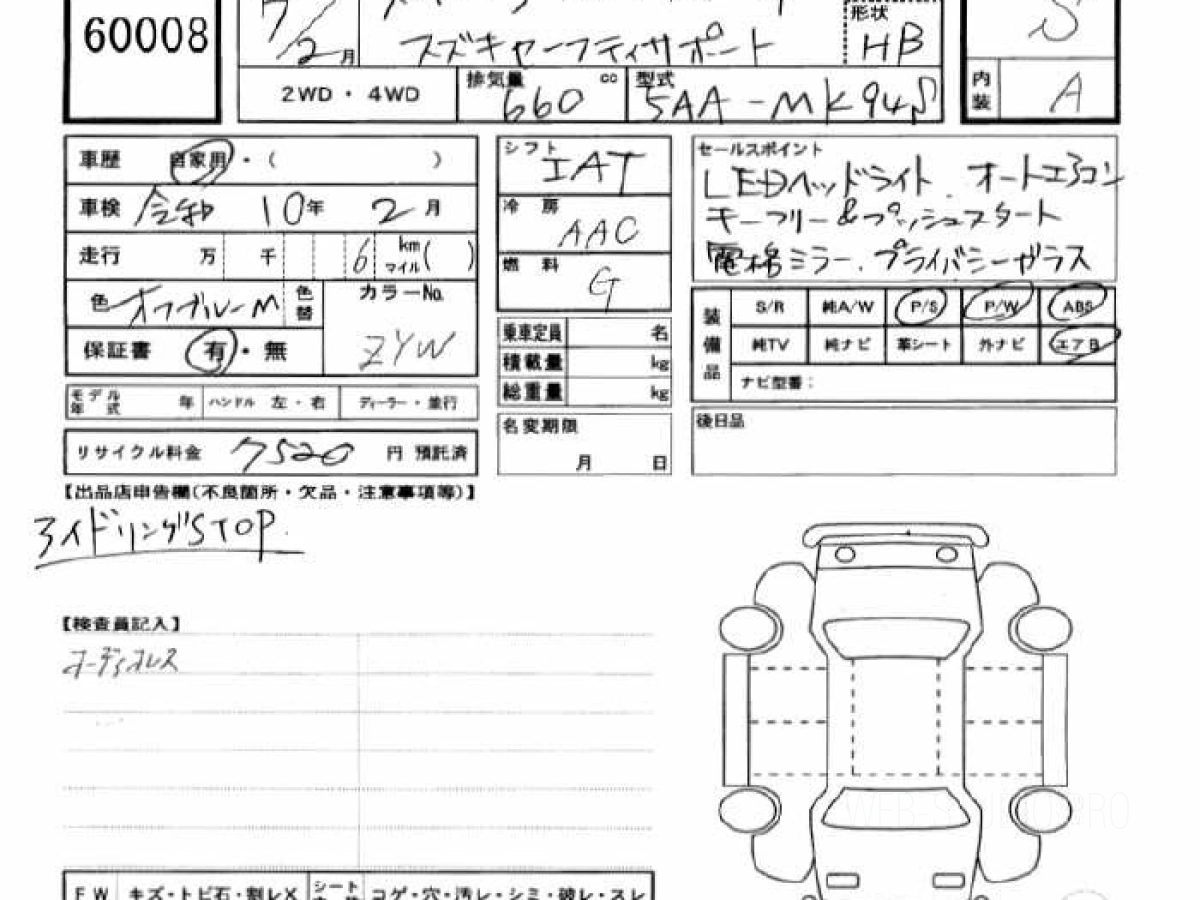 60008
7/2月
スズキセーフティサポート
形状
HB
S
2WD・4WD
排気量 660 cc
型式 5AA-MK94S
内装 A
車歴 自家用・( )
車検 令和 10年 2月
走行 万 千 6 km マイル( )
色 オフブルーM 色替
カラーNo. ZYW
保証書 有・無
モデル年式 年 ハンドル 左・右 ディーラー・並行
リサイクル料金 7520 円 預託済
シフト IAT
冷房 AAC
燃料 G
乗車定員 名
積載量 kg
総重量 kg
名変期限
月 日
セールスポイント
LEDヘッドライト.オートエアコン
キーフリー&プッシュスタート
電格ミラー.プライバシーガラス
装備品
S/R 純A/W P/S P/W ABS
純TV 純ナビ 革シート 外ナビ エアB
ナビ型番:
後日品
【出品店申告欄(不良箇所・欠品・注意事項等)】
アイドリングSTOP.
【検査員記入】
オーディオレス
WEB-S PRO
FW キズ・トビ石・割レX シート コゲ・穴・汚レ・シミ・破レ・スレ